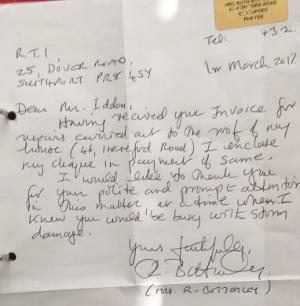 Tel: 432.
R.T.I
25, Dover Road,
SOUTHPORT PR8 4SY
1st March 2017
Dear Mr. Iddon,
Having recived your Invoice for
repairs carried out to the roof of my
house (46, Hereford Road) I enclose
my cheque in payment of same.
I would like to thank you
for your polite and prompt attention
in this matter at a time when I
know you would be busy with storm
damage.
Yours faithfully,
R. Bottomley
(Mrs. R. BOTTOMLEY)